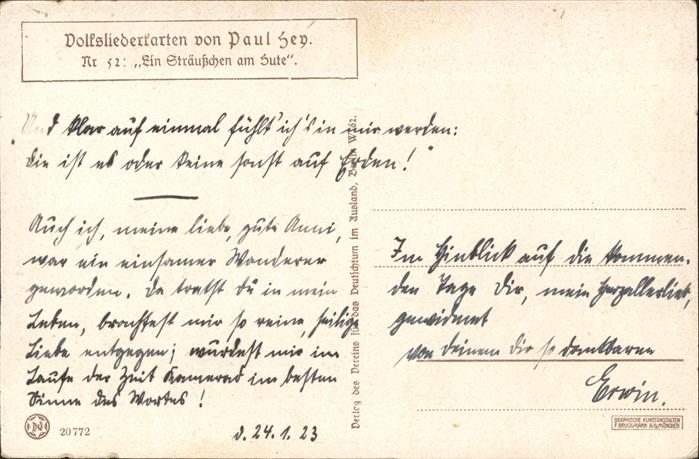 Volksliederkarten von Paul Hey.
Nr 52: „Ein Sträußchen am Hute“.
„Und klar auf einmal fühlt' ich's in mir werden:
die ist es oder keine sonst auf Erden!“
Auch ich, meine liebe, gute Anni,
war ein einsamer Wanderer
geworden. Da tratst Du in mein
Leben, brachtest mir so reine, heilige
Liebe entgegen; wurdest mir im
Laufe der Zeit Kamerad im besten
Sinne des Wortes!
d. 24.1.23
20772
Verlag des Vereins für das Deutschtum im Ausland, Berlin W 62.
Im Hinblick auf die kommen-
den Tage Dir, mein Herzallerlieb,
gewidmet
von deinem dir so dankbaren
Erwin.
GRAPHISCHE KUNSTANSTALTEN
F. BRUCKMANN A.G. MÜNCHEN